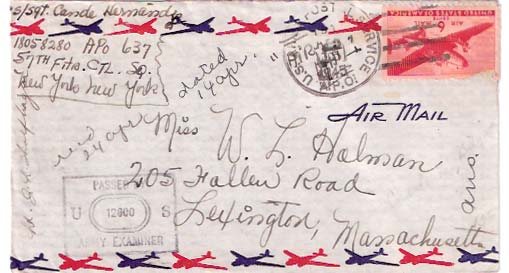 S/Sgt. Cande Hernandez
18058280 APO 637
57TH Ftr. CTL. Sq.
New York New York
dated
14 apr.
rec'd
24 apr
U.S. POSTAL SERVICE
A.P.O.
UNITED STATES OF AMERICA
AIR MAIL
6¢
AIR MAIL
Miss W. L. Halman
205 Fallen Road
Lexington,
Massachusetts
ans.
PASSED BY
U 12600 S
ARMY EXAMINER